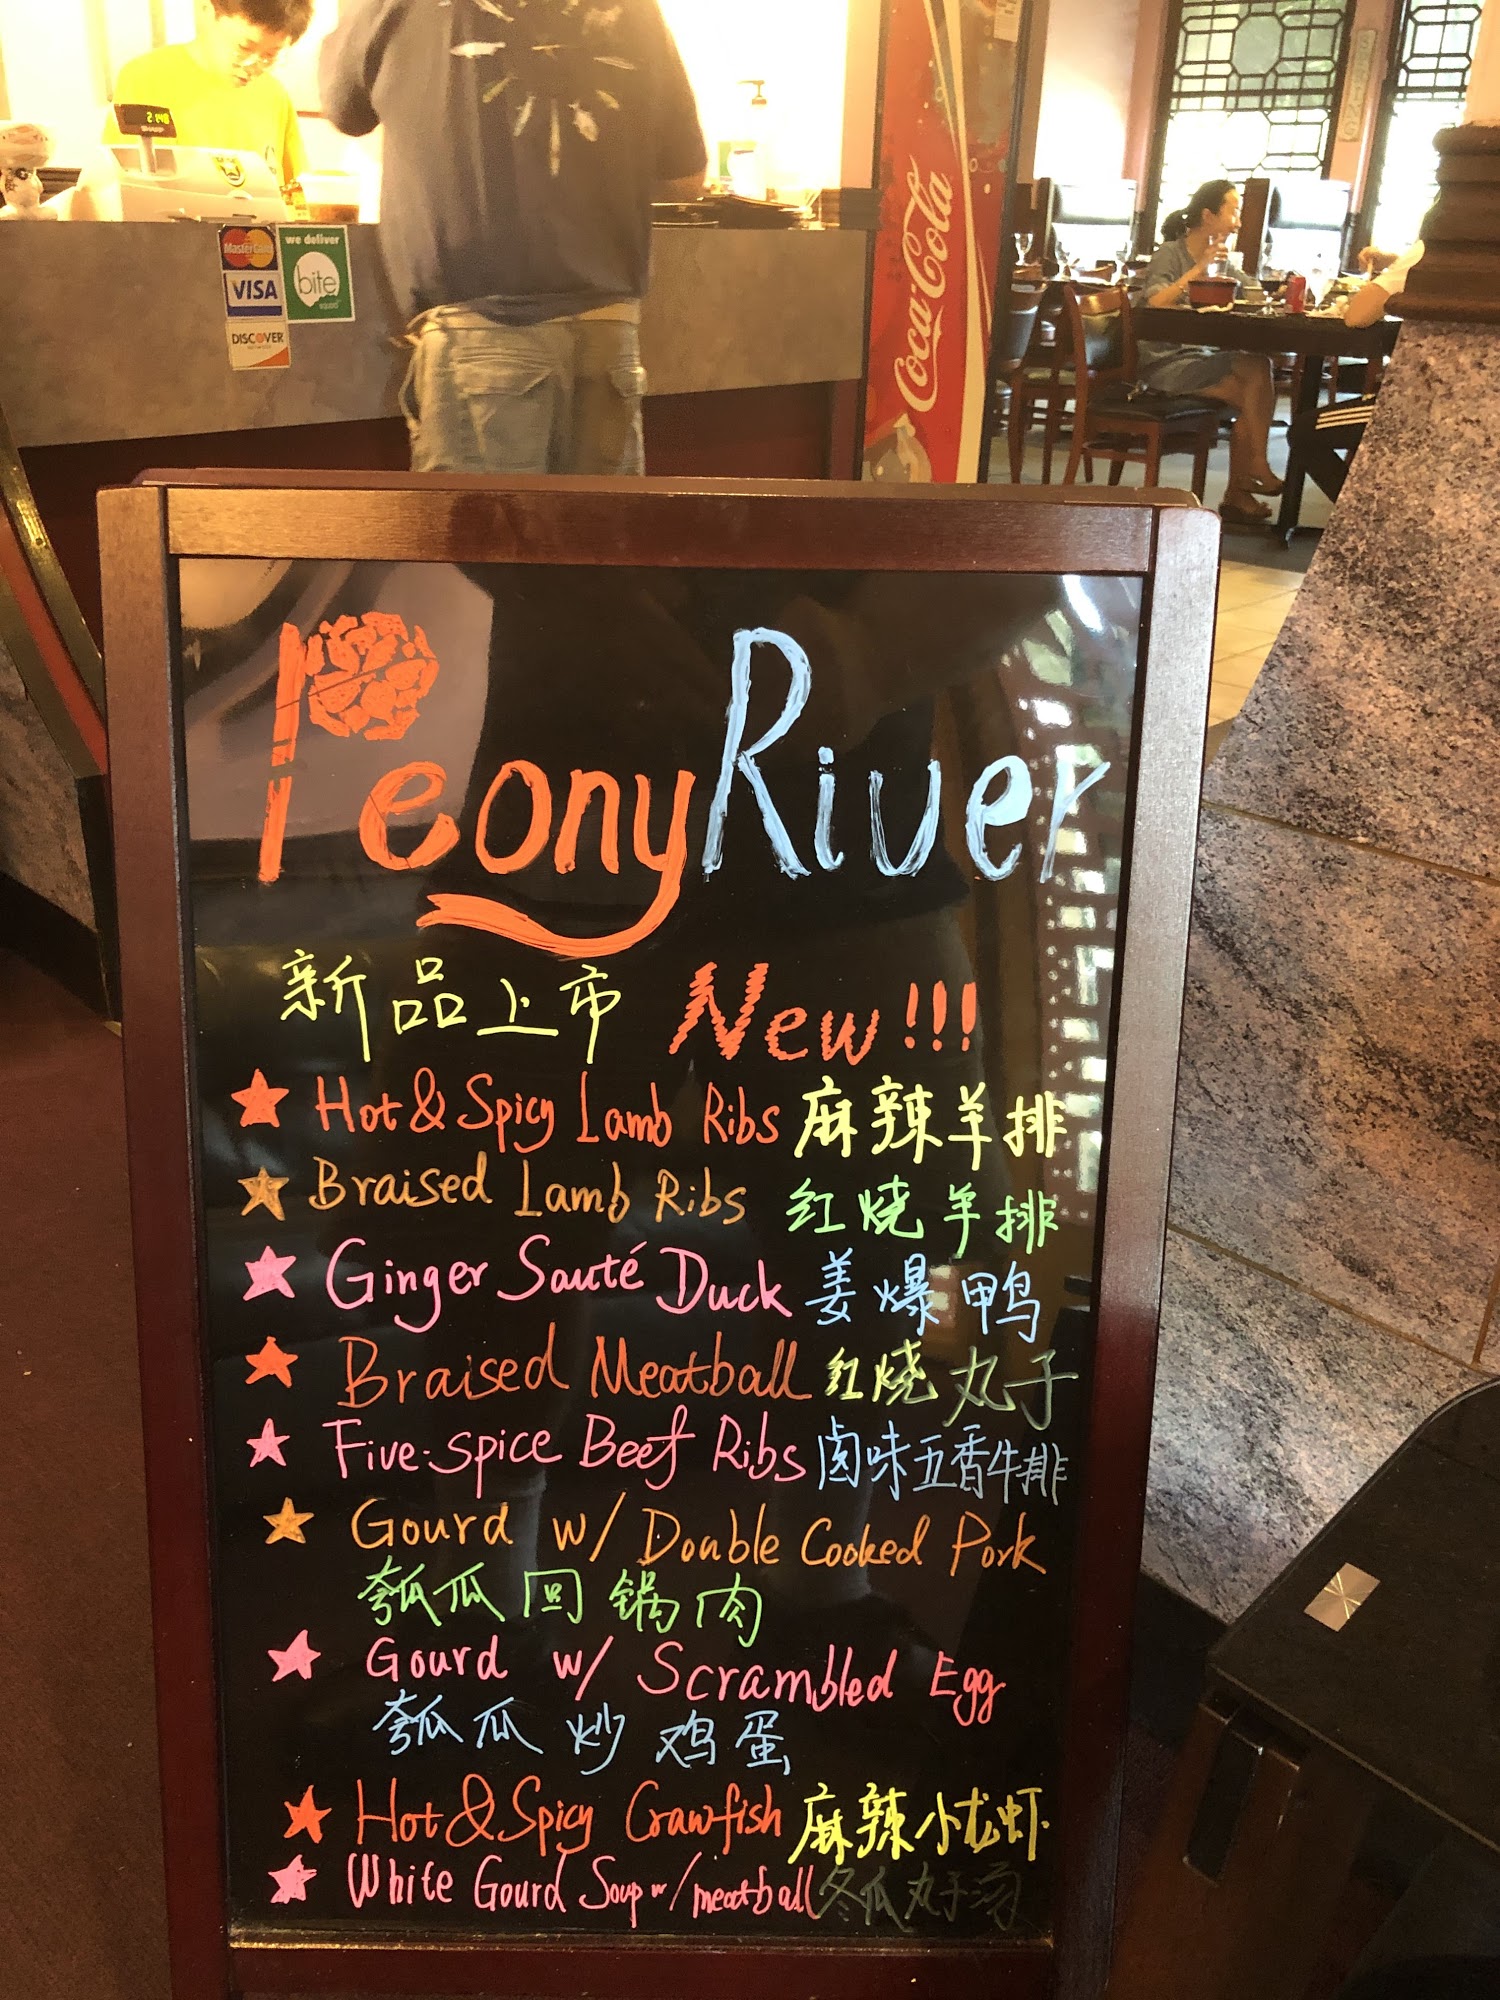 2140
SHARP
MasterCard
VISA
DISCOVER
NETWORK
we deliver
bite
squad
Coca-Cola
PeonyRiver
新品上市 New!!!
Hot & Spicy Lamb Ribs 麻辣羊排
Braised Lamb Ribs 红烧羊排
Ginger Sauté Duck 姜爆鸭
Braised Meatball 红烧丸子
Five-spice Beef Ribs 卤味五香牛排
Gourd w/ Double Cooked Pork
瓠瓜回锅肉
Gourd w/ Scrambled Egg
瓠瓜炒鸡蛋
Hot & Spicy Crawfish 麻辣小龙虾
White Gourd Soup w/ meatball 冬瓜丸子汤